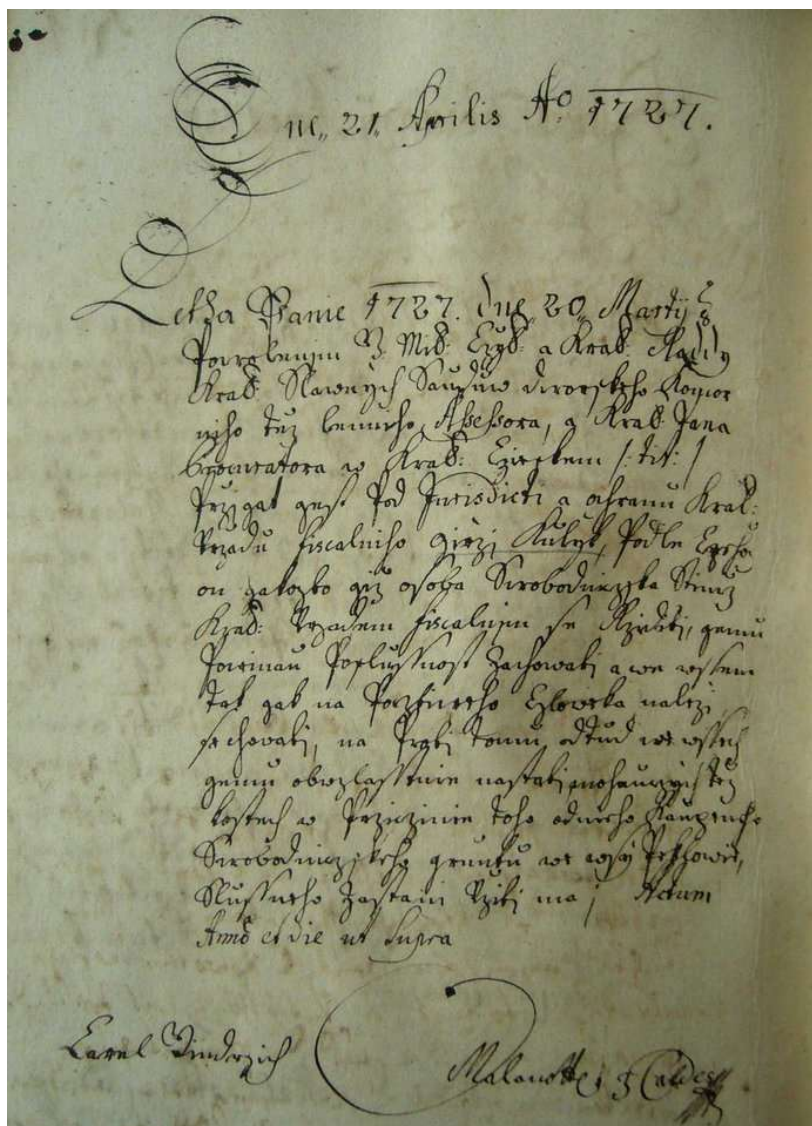 Dne 21 Aprilis Ao 1727.
Letha Panie 1727. dne 20 Martij z
Powolenjm J. Mil: Czys: a Kral: Raddy
Kral: Slawnych Sauduw dworskeho komor
niho tez lenniho Assessora, a Kral: Pana
Procuratora w Kral: Czieskem /: tit: /
Przigat gest pod Jurisdicti a ochranu Kral:
Vrzadu fiscalniho Girzi Kulyk, podle czeho
on gakozto giz osoba Swobodniczka
Kral: Vrzadem fiscalnjm se Rziditi, gemu
Powinnau Poslussnost Zachowati a we wssem
tak gak na Poczliweho Czloweka nalezi
se chowati, na Proti tomu odtud we wssech
gemu obwzlasstnie nastati mohauczych
w Prziczinie toho od neho Kaupeneho
Swobodniczkeho gruntu we wsy
Slussneho Zastani Vziti ma; Actum
Anno et die ut Supra
Carel Jindrzich